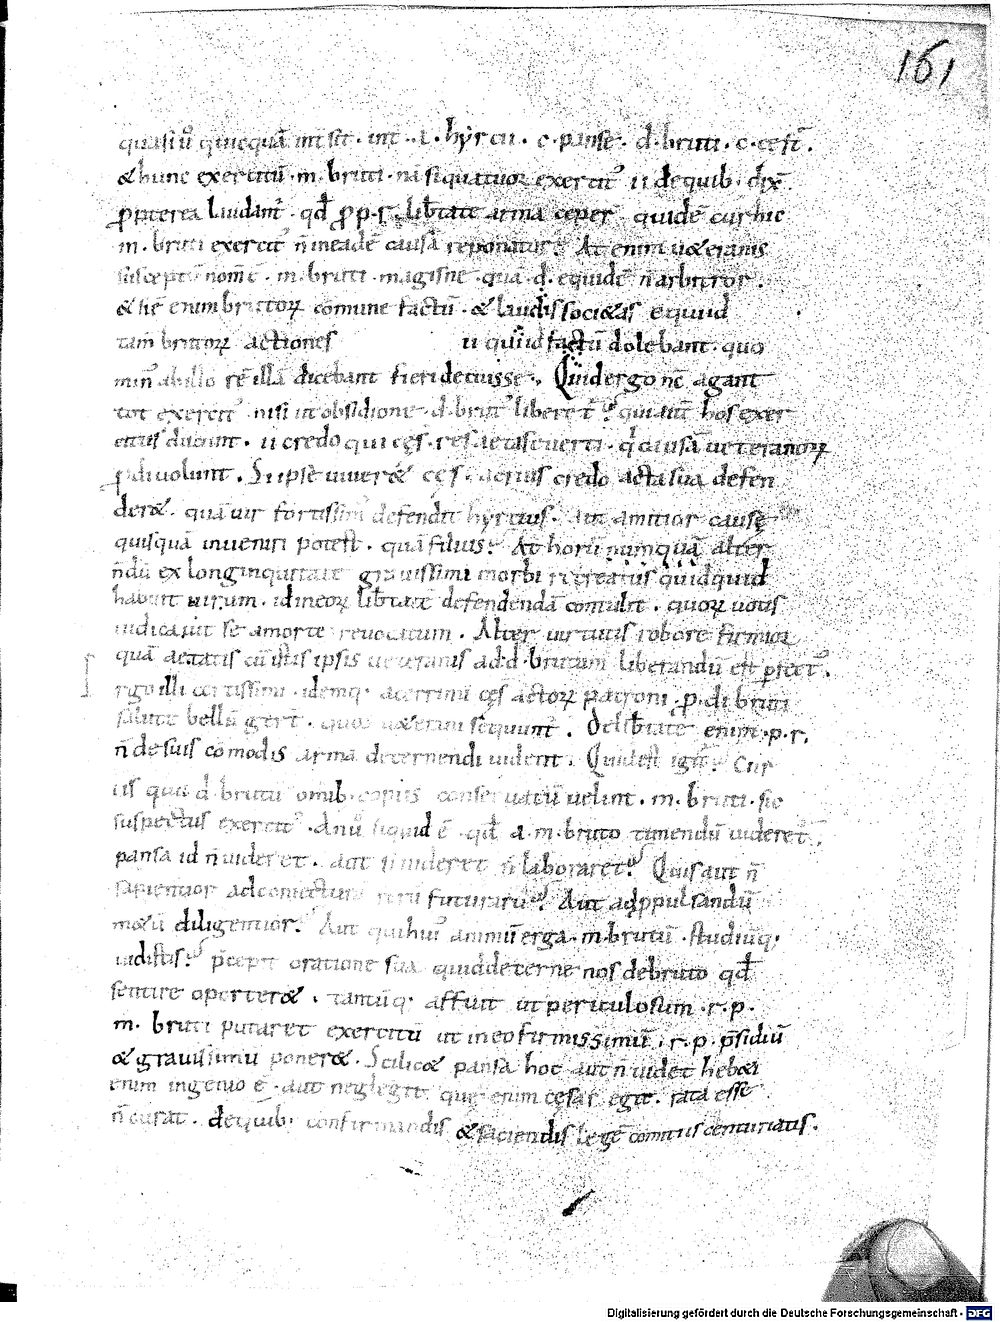 161
quasi ū quicquā int sit · int · a · hyrcii · c · panse · d · bruti · c · cesr̄ ·
& hunc exercitū · m · bruti · nā si quattuor exercit᾽ ii de quib · dix̄
ꝓpterea laudant᾽ · qd̄ ꝓ p · r · lib̄tate arma ceper̄ quidē cur hic
m · bruti exercit᾽ n̄ in eadē causā reponatur? At enim u&eranis
susceptū nom̄ ē · m · bruti · magisne quā · d · equidē n̄ arbitror ·
& sic̄ enim brutorꝝ cōmune factū · & laudis soci&as equa id
tam̄ brutorꝝ actiones ii qui id factū dolebant · quo
min᾽ ab illo rē illā dicebant fieri decuisse · Quid ergo nc̄ agant
tot exercit᾽ nisi ut obsidione · d · brut᾽ liberet᾽? qui aut̄ hos exer
citus ducunt · ii credo qui cęs · res actas euerti · q̄ causā ueteranorꝝ
ꝓdi uolunt · Si ipse uiuer& cęs · acrius credo acta sua defen
der& · quā uir fortissim᾽ defendit hyrcius · aut amitior causę
quisquā inueniri potest · quā filius? At horū numquā alter
n̄dū ex longinquitate grauissimi morbi recreatus quidquid
habuit uirum · id in eorꝝ lib̄tatē defendendā contulit · quorꝝ uotis
iudicauit se a morte reuocatum · Alter uirtutis robore firmior
quā aetatis cū istis ipsis ueteranis ad · d · brutum liberandū est ꝓfect᾽ ·
rgo illi certissimi · idemq · acerrimi cęs actorꝝ patroni · p · di bruti
salute bellū gert̄ · quos u&erani sequunt᾽ · De lib̄tate enim · p · r ·
n̄ de suis cōmodis arma decernendi uident · Quid est igit᾽? Cur
iis qui d · brutū omib · copiis conseruatū uelint · m · bruti · sic
suspectus exercit᾽ · An ū siquid ē · qd̄ a · m · bruto timendū uideret᾽ ·
pansa id n̄ uideret · aut si uideret n̄ laboraret? Quis aut n̄
sapientior ad coniecturā rerū futurarū? Aut ad ꝓpulsandū
m&ū diligentior? Aut qui hui᾽ animū erga · m · brutū · studiūq;
uidistis? p̄cepit oratione sua quid decerne nos de bruto qd̄
sentire oporter& · tantūq · affuit ut periculosum · r · p ·
m · bruti putaret exercitū ut in eo firmissimū · r · p · p̄sidiū
& grauissimū poner& · Scilic& pansa hoc aut n̄ uidet heb&i
enim ingenio ē · aut neglegit que enim cęsar egit · rata esse
n̄ curat · de quib · confirmandis & faciendis legē comitiis centuriatis ·
Digitalisierung gefördert durch die Deutsche Forschungsgemeinschaft - DFG